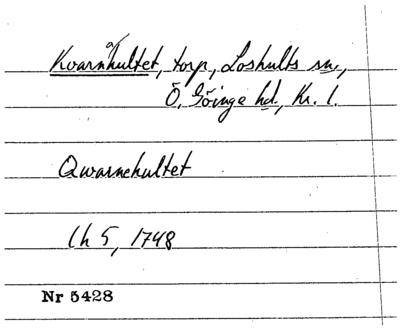 Kvarnhultet, torp, Loshults sn.,
Ö. Göinge hd., Kr. l.
Qwarnehultet
lh 5, 1748
Nr 5428